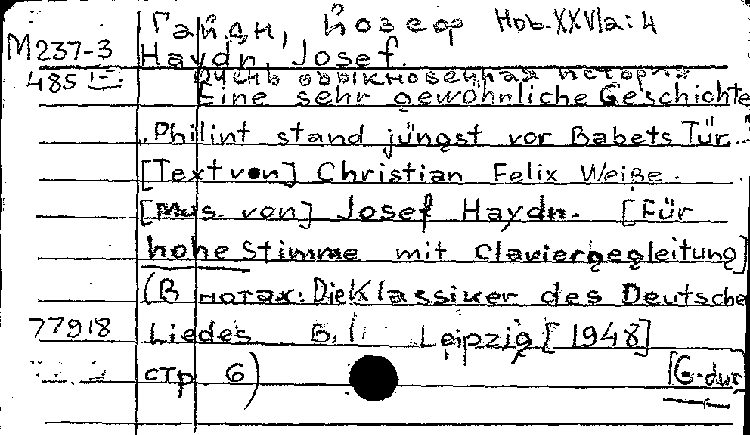 Гайдн, Йозеф Hob. XXVIa: 4
M 237-3 Haydn, Josef.
485 Очень обыкновенная история
Eine sehr gewöhnliche Geschichte
"Philint stand jüngst vor Babets Tür..
[Text von] Christian Felix Weiße.
[Mus. von] Josef Haydn. [Für
hohe Stimme mit Clavierbegleitung]
(В нотах: Die Klassiker des Deutsche
77918 Liedes B. I Leipzig [1948]
стр 6) [G-dur]